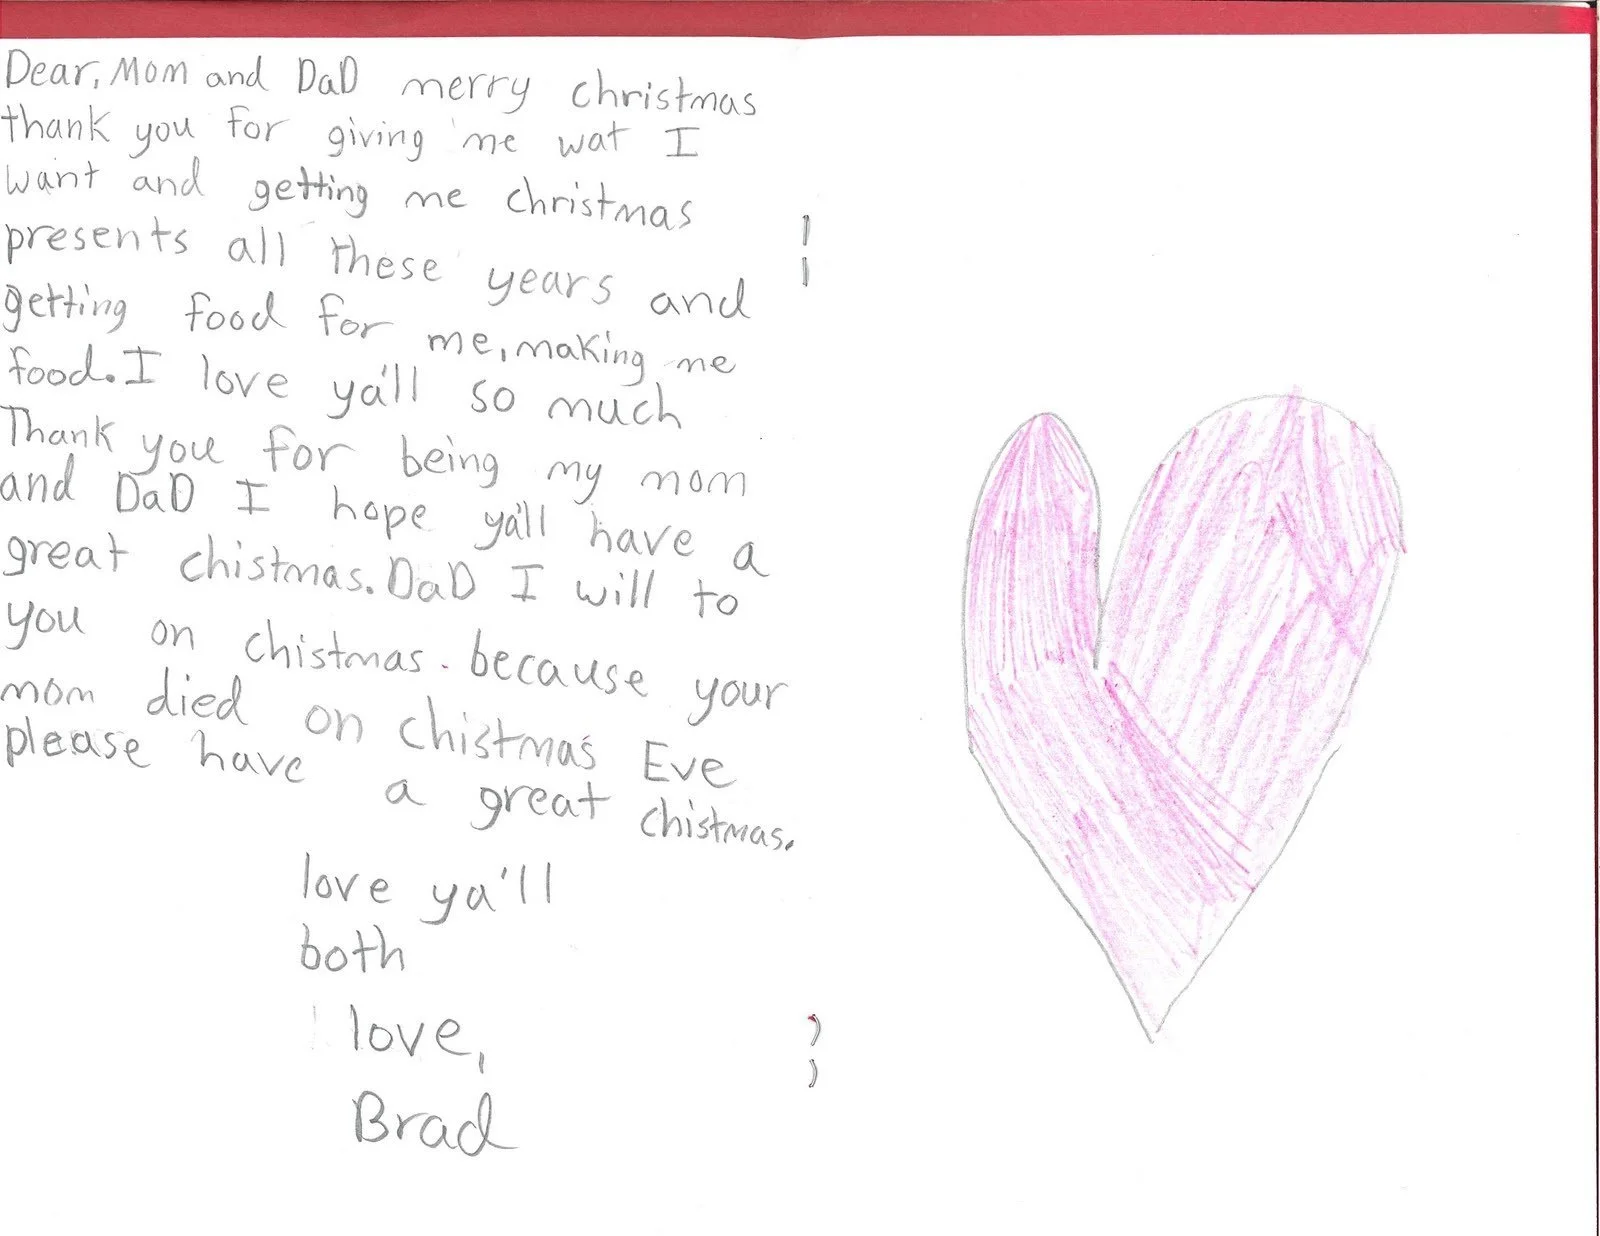 Dear, Mom and DaD merry christmas
thank you for giving me wat I
want and getting me christmas
presents all these years and
getting food for me, making me
food. I love ya'll so much
Thank you for being my mom
and DaD I hope ya'll have a
great chistmas. DaD I will to
you on chistmas. because your
mom died on chistmas Eve
please have a great chistmas.
love ya'll
both
love,
Brad